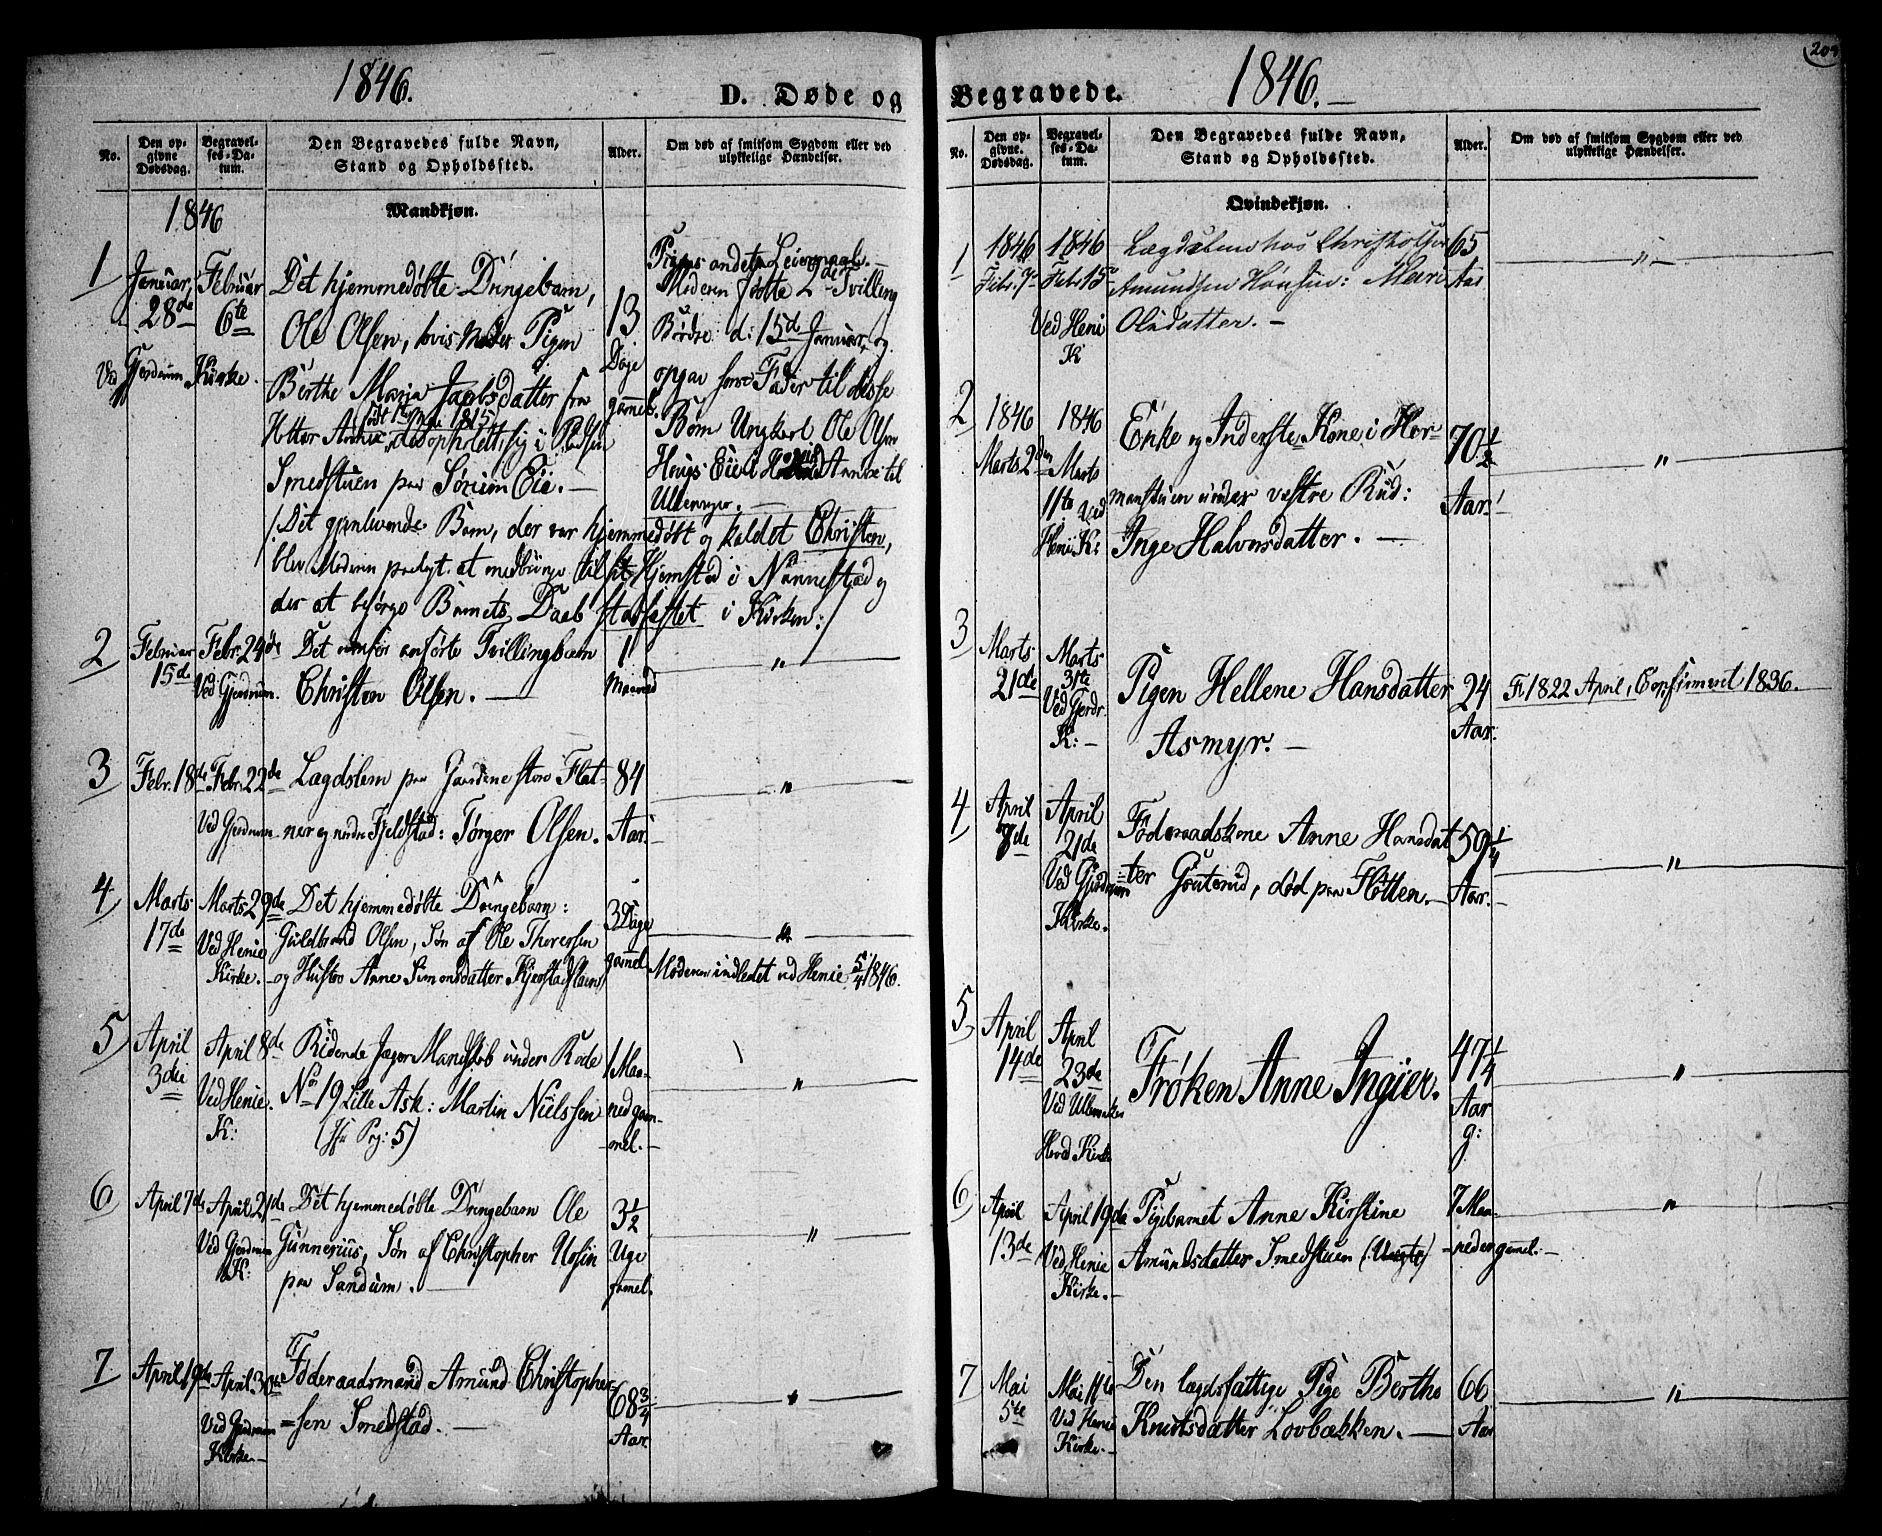 1846.
D. Døde og
No.
Den opgivne Dødsdag.
Begravelses-Datum.
Den Begravedes fulde Navn,
Stand og Opholdssted.
Alder.
Om død af smitsom Sygdom eller ved
ulykkelige Hændelser.
1846
Mandkjøn.
1
Januar, 28de
Februar 6te
Ved Gjerdrum Kirke.
Det hjemmedøbte Drengebarn,
Ole Olsen, hvis Moder Pigen
Berthe Maria Jacobsdatter fra
Smedstuen paa Sørum Eie.
13 Dage gamel.
Moderen fødte 2de Tvilling
Børn d: 15de Januar, og
opgav som Fader til disse
Børn Ungkarl Ole Olsen
Det gjenlevende Barn, der var hjemmedøbt og kaldet Christen,
blev Moderen paalagt at medbringe til sit Hjemsted i Nannestad og
der at besørge Barnets Daab stadfæstet i Kirken:/
2
Februar 15de
Febr. 24de
Ved Gjerdrum.
Det ovenfor anførte Tvillingbarn
Christen Olsen.
1 Maaned
"
3
Febr. 18de
Febr. 22de
Ved Gjerdrum
Lægdslem paa Gaardene store Flat-
ner og nedre Fjeldstad: Torger Olsen.
84 Aar.
"
4
Marts 17de
Marts 29de
Ved Henie Kirke.
Det hjemmedøbte Drengebarn:
Guldbrand Olsen, Søn af Ole Thoresen
og Hustro Anne Simonsdatter
3 Dage gamel
"
Moderen indledet ved Henie 5/4 1846.
5
April 3die
April 8de
Ved Henie K:
Ridende Jæger Mandskab under Rode
No 19 Lille Ask: Martin Nielssen
(Pag: 5)
1 Maaned gammel.
"
6
April 7de
April 21de
Ved Gjerdrum K:
Det hjemmedøbte Drengebarn Ole
Gunnerius, Søn af Christopher
paa Sandum.
3½ Uge gamel.
"
7
April 19de
April 30te
Ved Gjerdrum Kirke.
Føderaadsmand Amund Christopher-
=sen Smedstad.
68¾ Aar.
"
Begravede.
1846.
No.
Den opgivne Dødsdag.
Begravelses-Datum.
Den Begravedes fulde Navn,
Stand og Opholdssted.
Alder.
Om død af smitsom Sygdom eller ved
ulykkelige Hændelser.
Qvindekjøn.
1
1846 Febr. 7de
1846 Febr. 15de
Ved Heni K
Lægdslem hos Christofer
Amundsen Hønsen: Mari
Olsdatter.
65 Aar
"
2
1846 Marts 2den
1846 Marts 11te Ved Heni K:
Enke og Inderste Kone i Her-
manstuen under vestre Rud:
Inge Halvorsdatter.
70½ Aar.
"
3
Marts 21de
Marts 31te
Ved Gjerdr. K:
Pigen Hellene Hansdatter
Asmyr.
24 Aar.
F. 1822 April, Confirmeret 1836.
4
April
April 21de
Ved Gjerdrum Kirke.
Føderaadskone Anne Hansdat
=ter Gruterud, død paa Flotten.
59¼ Aar.
"
5
April 14de
April 23de
Ved Kirke
Frøken Anne Ingier.
47¼ Aar g:
"
6
April 13de
April 19de
Ved Henie Kirke.
Pigebarnet Anne Kirstine
Amundsdatter Smedstuen
7 Maa-
=neder gamel.
"
7
Mai 5te
Mai 11te
Ved Henie Kirke.
Den lægdsfattige Pige Berthe
Knutsdatter Lovbækken.
66 Aar
"